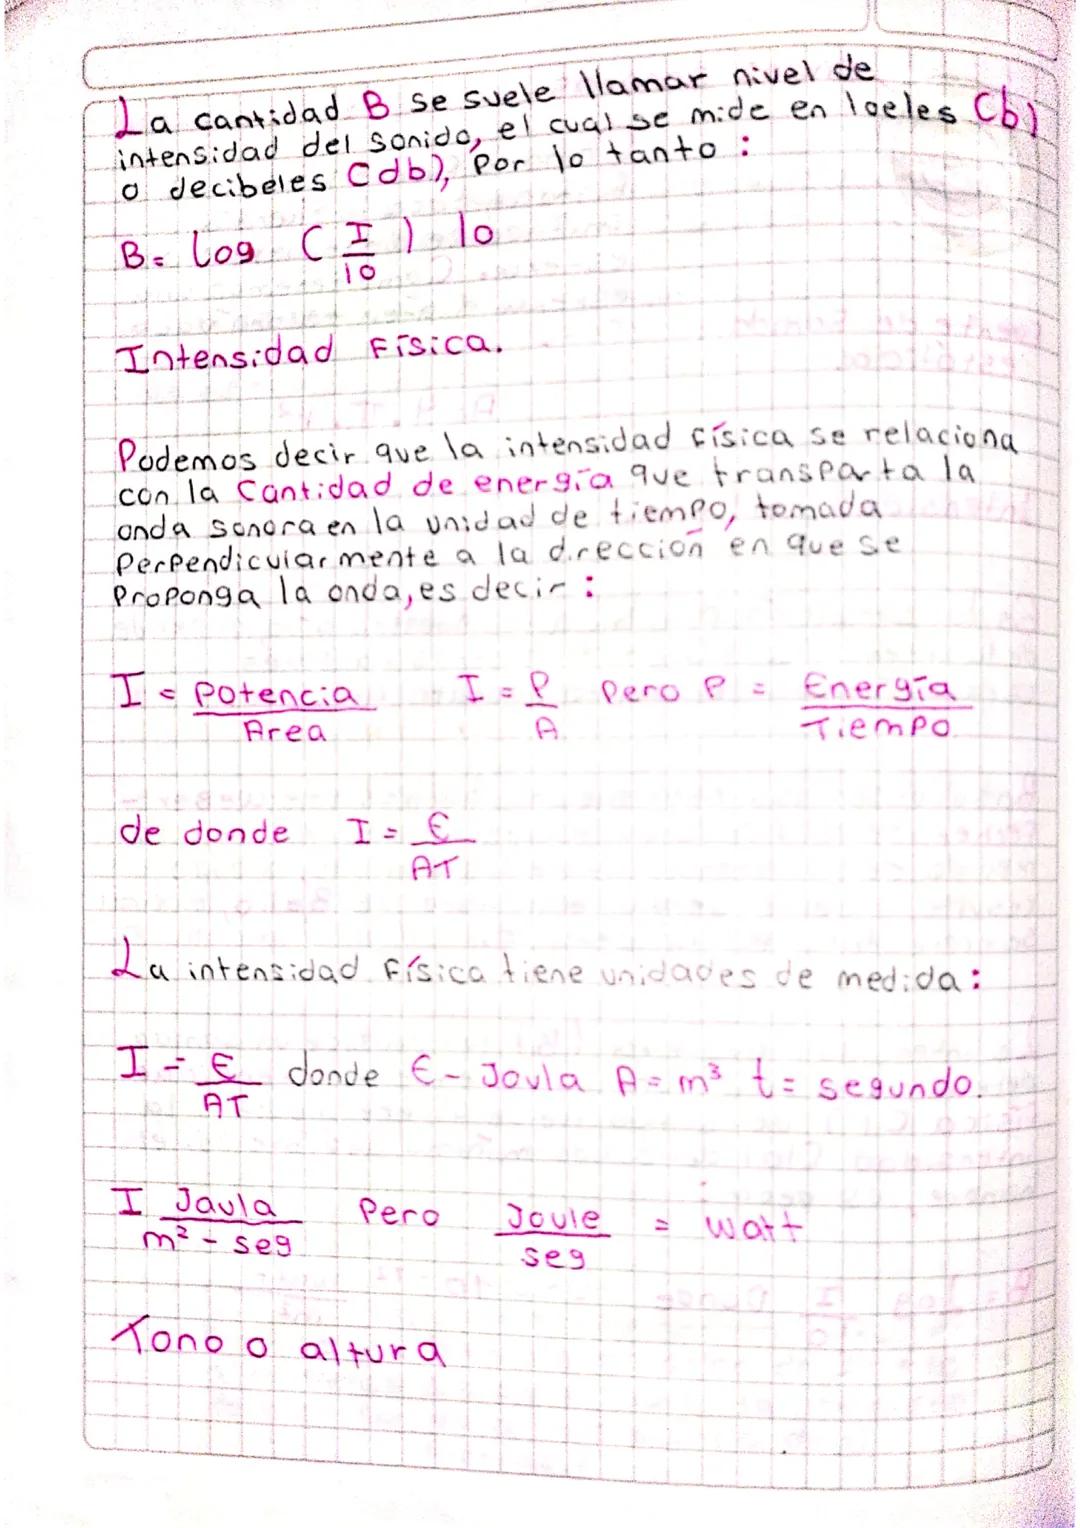 La cantidad B se suele llamar nivel de
intensidad del sonido, el cual se mide en loeles (b)
o decibeles (db), Por lo tanto :
B= log ( I / 10 ) 10
Intensidad Física.
Podemos decir que la intensidad física se relaciona
con la Cantidad de energía que transparta la
onda sonora en la unidad de tiempo, tomada
Perpendicularmente a la dirección en que se
Proponga la onda, es decir :
I = Potencia / Area I = P / A Pero P = Energía / Tiempo
de donde I = E / AT
La intensidad Física tiene unidades de medida :
I = E / AT donde E - Joula A = m³ t = segundo.
I Jaula / m² - seg Pero Joule / seg = watt
Tono o altura